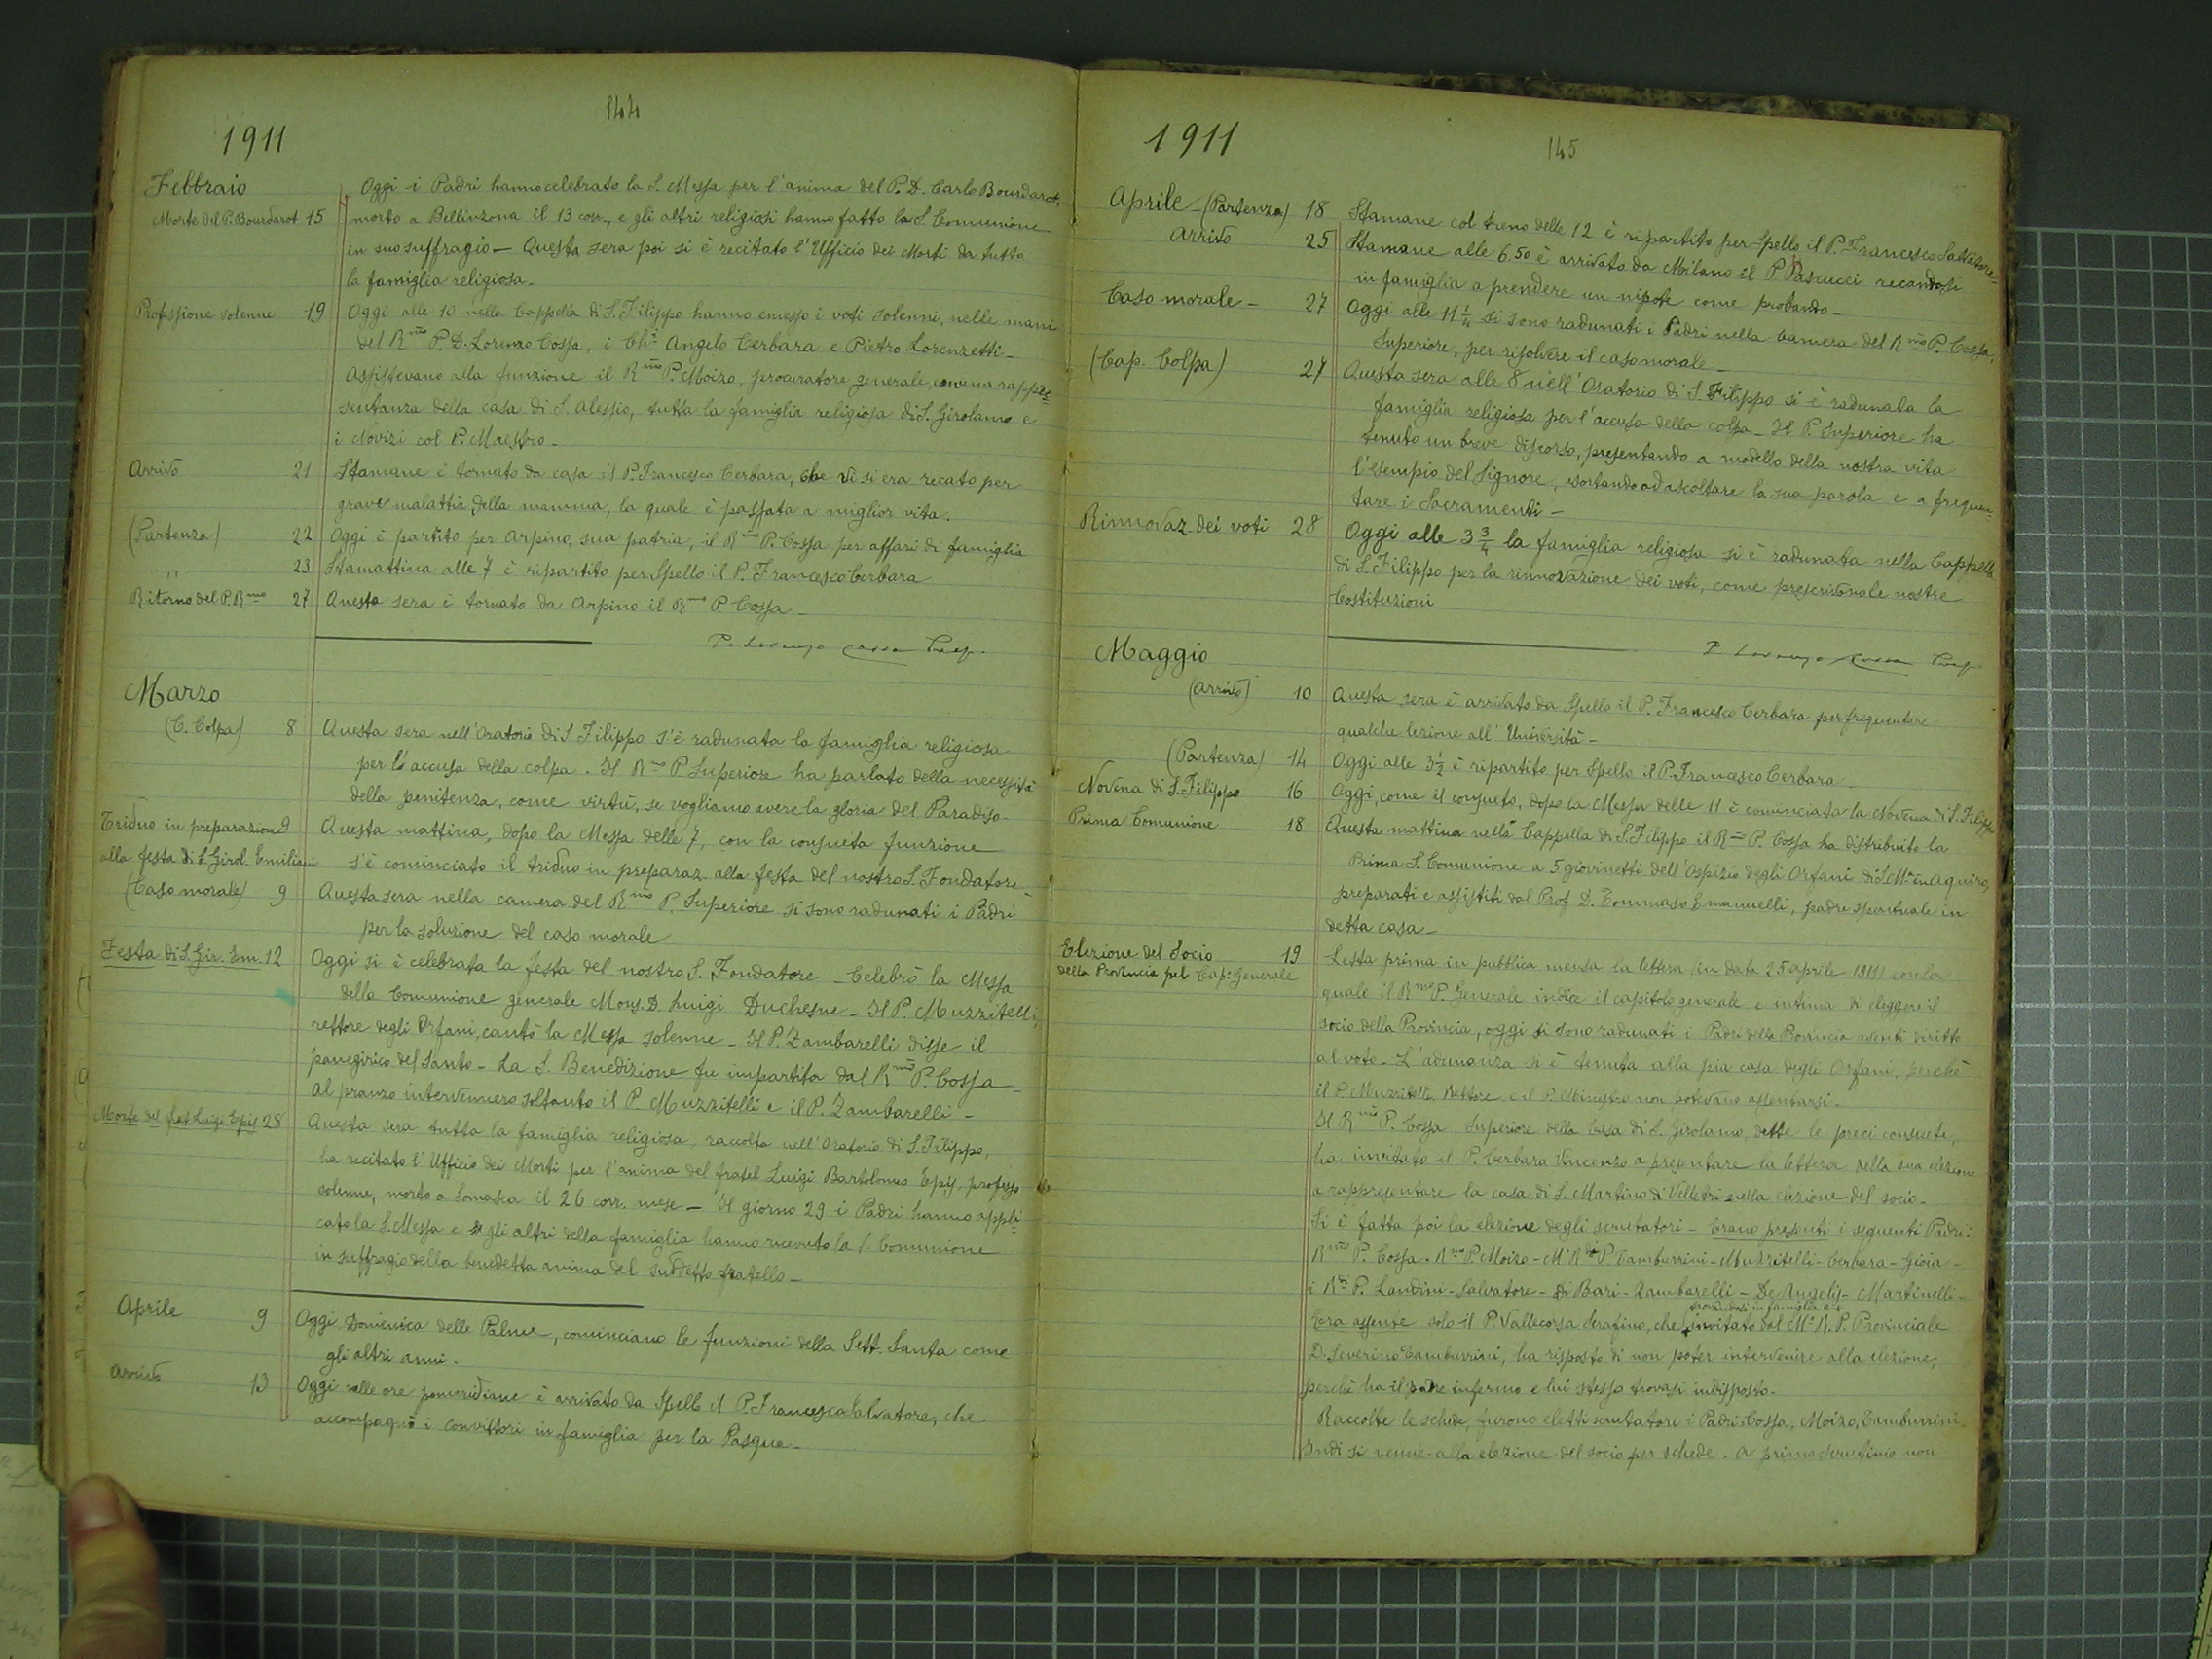 144
1911
Febbraio
Oggi i Padri hanno celebrato la S. Messa per l'anima del P. D. Carlo Bourdarot,
Morte del P. Bourdarot 15 morto a Bellinzona il 13 corr., e gli altri religiosi hanno fatto la S. Comunione
in suo suffragio — Questa sera poi si è recitato l'Ufficio dei Morti da tutta
la famiglia religiosa.
Professione solenne 19 Oggi alle 10 nella Cappella di S. Filippo hanno emesso i voti solenni, nelle mani
del Rmo P. D. Lorenzo Cossa, i Chi Angelo Cerbara e Pietro Lorenzetti —
Assistevano alla funzione il Rmo P. Moizo, procuratore generale, con una rappre=
sentanza della casa di S. Alessio, tutta la famiglia religiosa di S. Girolamo e
i Novizi col P. Maestro —
Arrivo 21 Stamane è tornato da casa il P. Francesco Cerbara, che vi si era recato per
grave malattia della mamma, la quale è passata a miglior vita.
(Partenza) 22 Oggi è partito per Arpino, sua patria, il Rmo P. Cossa per affari di famiglia
" 23 Stamattina alle 7 è ripartito per Spello il P. Francesco Cerbara
Ritorno del P. Rmo 27 Questa sera è tornato da Arpino il Rmo P. Cossa —
P. Lorenzo Cossa Prep.
Marzo
(C. Colpa) 8 Questa sera nell'Oratorio di S. Filippo s'è radunata la famiglia religiosa
per l'accusa della colpa. Il Rmo P. Superiore ha parlato della necessità
della penitenza, come virtù, se vogliamo avere la gloria del Paradiso —
Triduo in preparazione 9 Questa mattina, dopo la Messa delle 7, con la consueta funzione
alla festa di S. Girol. Emiliani s'è cominciato il triduo in preparaz. alla festa del nostro S. Fondatore —
(Caso morale) 9 Questa sera nella camera del Rmo P. Superiore si sono radunati i Padri
per la soluzione del caso morale
Festa di S. Gir. Em. 12 Oggi si è celebrata la festa del nostro S. Fondatore — Celebrò la Messa
della Comunione generale Mons. D. Luigi Duchesne — Il P. Muzzitelli,
rettore degli Orfani, cantò la Messa solenne — Il P. Zambarelli disse il
panegirico del Santo — La S. Benedizione fu impartita dal Rmo P. Cossa —
Al pranzo intervennero soltanto il P. Muzzitelli e il P. Zambarelli —
Morte del frat. Luigi Epis 28 Questa sera tutta la famiglia religiosa, raccolta nell'Oratorio di S. Filippo,
ha recitato l'Ufficio dei Morti per l'anima del fratel Luigi Bartolomeo Epis, professo
solenne, morto a Somasca il 26 corr. mese — Il giorno 29 i Padri hanno appli=
cato la S. Messa e gli altri della famiglia hanno ricevuto la S. Comunione
in suffragio della benedetta anima del suddetto fratello —
Aprile 9 Oggi Domenica delle Palme, cominciano le funzioni della Sett. Santa come
gli altri anni.
Arrivo 13 Oggi nelle ore pomeridiane è arrivato da Spello il P. Francesco Salvatore, che
accompagnò i convittori in famiglia per la Pasqua —
1911
145
Aprile — (Partenza) 18 Stamane col treno delle 12 è ripartito per Spello il P. Francesco Salvatore —
Arrivo 25 Stamane alle 6.50 è arrivato da Milano il P. Pascucci recandosi
in famiglia a prendere un nipote come probando —
Caso morale — 27 Oggi alle 11 1/4 si sono radunati i Padri nella camera del Rmo P. Cossa,
Superiore, per risolvere il caso morale —
(Cap. Colpa) 27 Questa sera alle 8 nell'Oratorio di S. Filippo si è radunata la
famiglia religiosa per l'accusa della colpa — Il P. Superiore ha
tenuto un breve discorso, presentando a modello della nostra vita
l'esempio del Signore, esortando ad ascoltare la sua parola e a frequen-
tare i Sacramenti —
Rinnovaz. dei voti 28 Oggi alle 3 3/4 la famiglia religiosa si è radunata nella Cappella
di S. Filippo per la rinnovazione dei voti, come prescrivono le nostre
Costituzioni
P. Lorenzo Cossa Prep.
Maggio
(Arrivo) 10 Questa sera è arrivato da Spello il P. Francesco Cerbara per frequentare
qualche lezione all'Università —
(Partenza) 14 Oggi alle 3 1/2 è ripartito per Spello il P. Francesco Cerbara
Novena di S. Filippo 16 Oggi, come il consueto, dopo la Messa delle 11 è cominciata la Novena di S. Filippo
Prima Comunione 18 Questa mattina nella Cappella di S. Filippo il Rmo P. Cossa ha distribuito la
Prima S. Comunione a 5 giovinetti dell'Ospizio degli Orfani di S. Ma in Aquiro,
preparati e assistiti dal Prof. D. Tommaso Emanuelli, padre spirituale in
detta casa —
Elezione del Socio 19 Lesta prima in pubblica mensa la lettera (in data 25 aprile 1911) con la
della Provincia pel Cap: Generale quale il Rmo P. Generale indice il capitolo generale e intima di eleggere il
socio della Provincia, oggi si sono radunati i Padri della Provincia aventi diritto
al voto — L'adunanza si è tenuta alla pia casa degli Orfani, perchè
il P. Muzzitelli Rettore e il P. Ministro non potevano assentarsi —
Il Rmo P. Cossa Superiore della Casa di S. Girolamo, dette le preci consuete,
ha invitato il P. Cerbara Vincenzo a presentare la lettera della sua elezione
a rappresentare la casa di S. Martino di Velletri nella elezione del socio —
Si è fatta poi la elezione degli scrutatori — Erano presenti i seguenti Padri:
Rmo P. Cossa — Rmo P. Moizo — M. R. P. Tamburrini — Muzzitelli — Cerbara — Gioia —
i RR. P. Landini — Salvatore — Di Bari — Zambarelli — De Angelis — Martinelli —
trovandosi in famiglia e
Era assente solo il P. Vallecorsa Serafino, che invitato dal Mo R. P. Provinciale
D. Severino Tamburrini, ha risposto di non poter intervenire alla elezione,
perchè ha il padre infermo e lui stesso trovasi indisposto —
Raccolte le schede, furono eletti scrutatori i Padri Cossa, Moizo, Tamburrini.
Indi si venne alla elezione del socio per schede. A primo scrutinio non